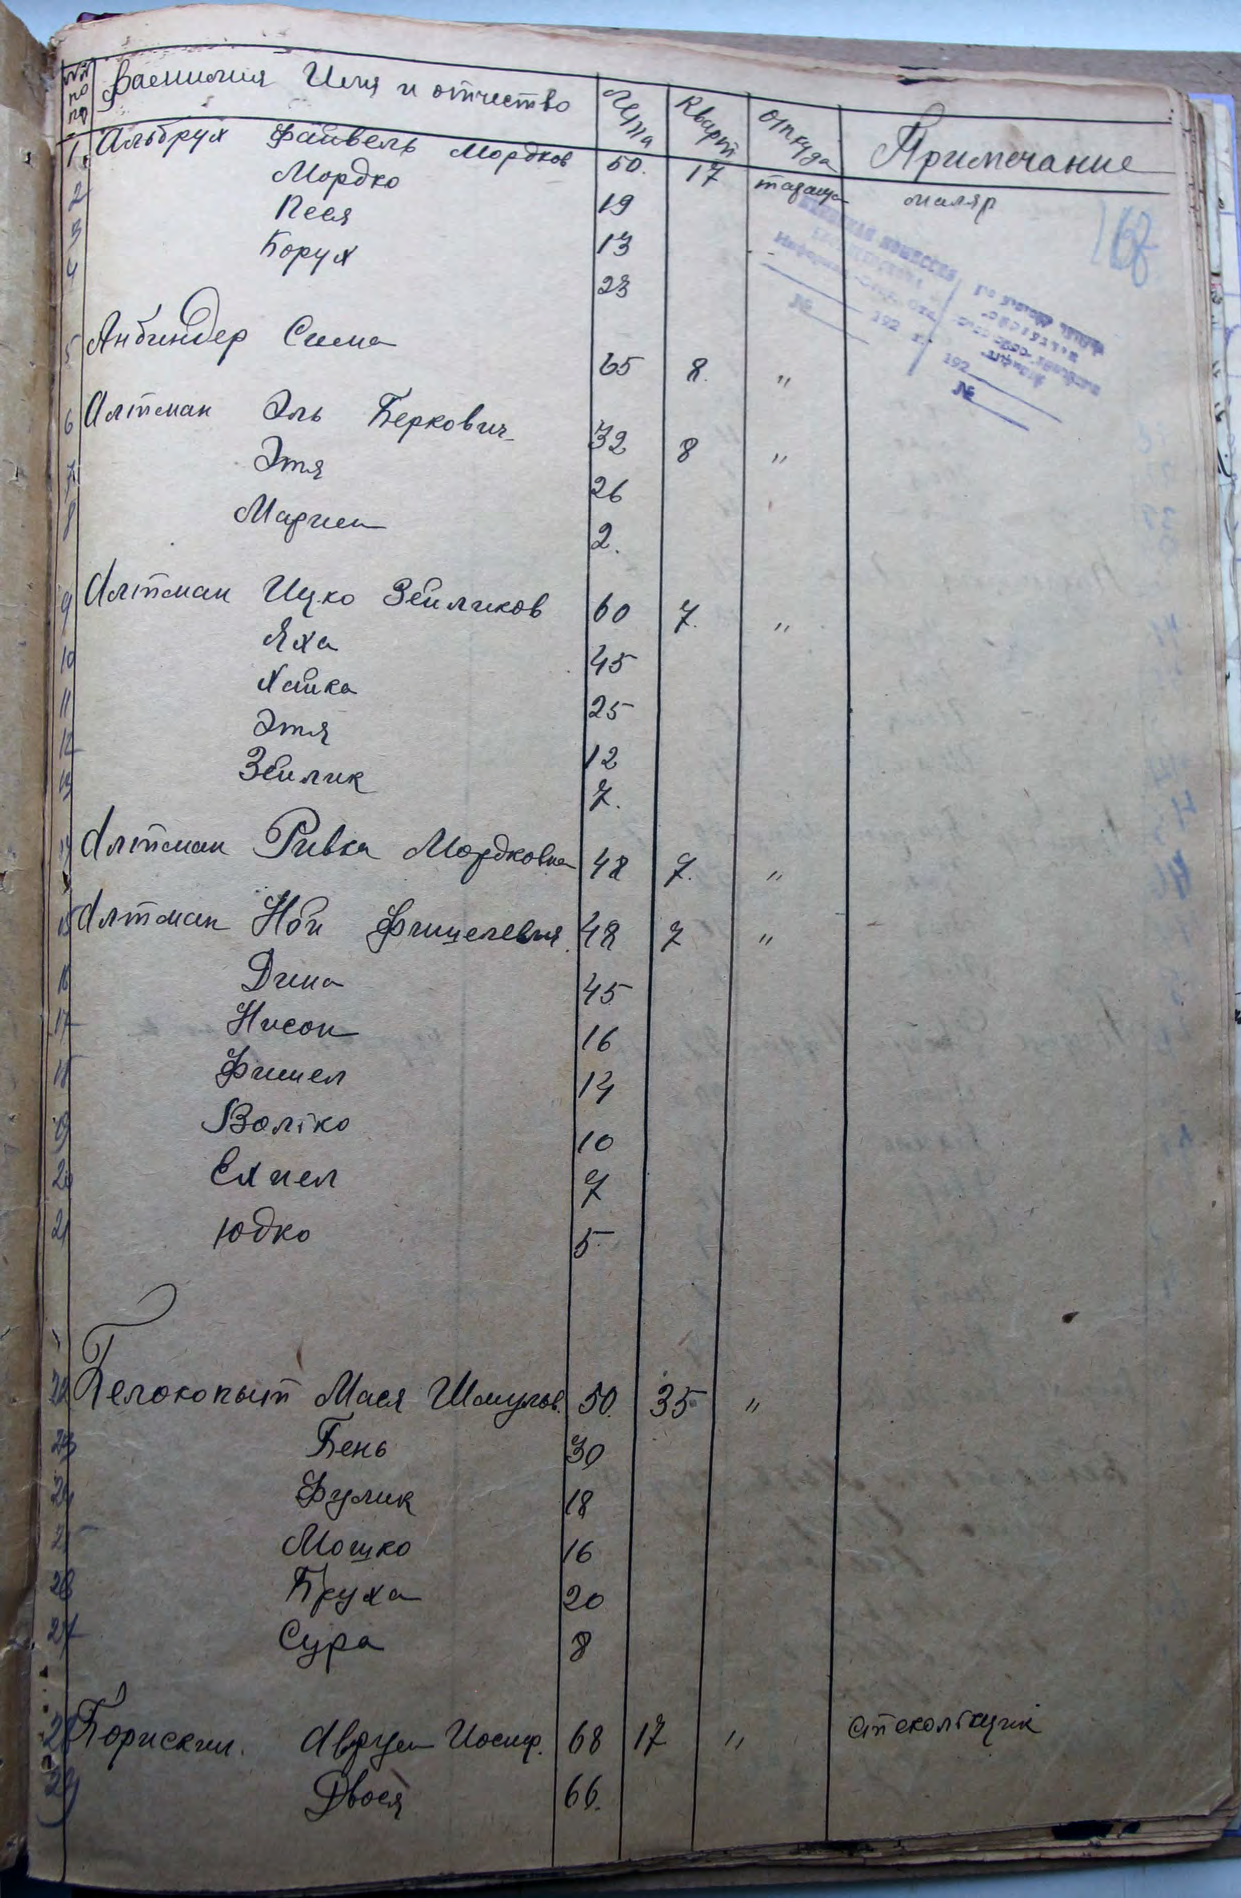 №№ по пор Фамилия Имя и отчество Лета Кварт откуда Примечание
1 Альбрух Файвель Мордков 50. 17 маляр
2 Мордко 19
3 Песя 13
4 Борух 23
5 Анбиндер Сима 65 8. "
6 Алтман Эль Беркович 32 8 "
7 Этя 26
8 Марием 2.
9 Алтман Ицко Зейликов 60 7. "
10 Яха 45
11 Хайка 25
12 Этя 12
13 Зейлик 7.
14 Алтман Ривка Мордковна 48 7. "
15 Алтман Ной Фишелевич 48 7 "
16 Дина 45
17 Нисон 16
18 Фишел 14
19 Волько 10
20 Ехиел 7
21 Юдко 5
22 Белокопыт Мася Шмулов. 50. 35 "
23 Бень 30
24 Фулик 18
25 Мошко 16
26 Бруха 20
27 Сура 8
28 Борискин. Аврум Иосиф. 68 17 " стекольщик
29 Двося 66.
168
192 г.
№
192
№